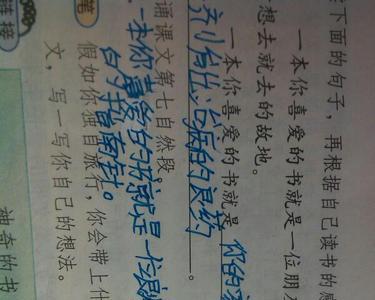 下面的句子，再根据自己读书的感
一本你喜爱的书就是一位朋
想去就去的故地。
一本你喜爱的书就是 你的
治病的良药。
诵课文第七自然段。
一本你喜爱的书就是一
的指南针。
笔
假如你独自旅行，你会带上什
文，写一写你自己的想法。
链接
神奇的书